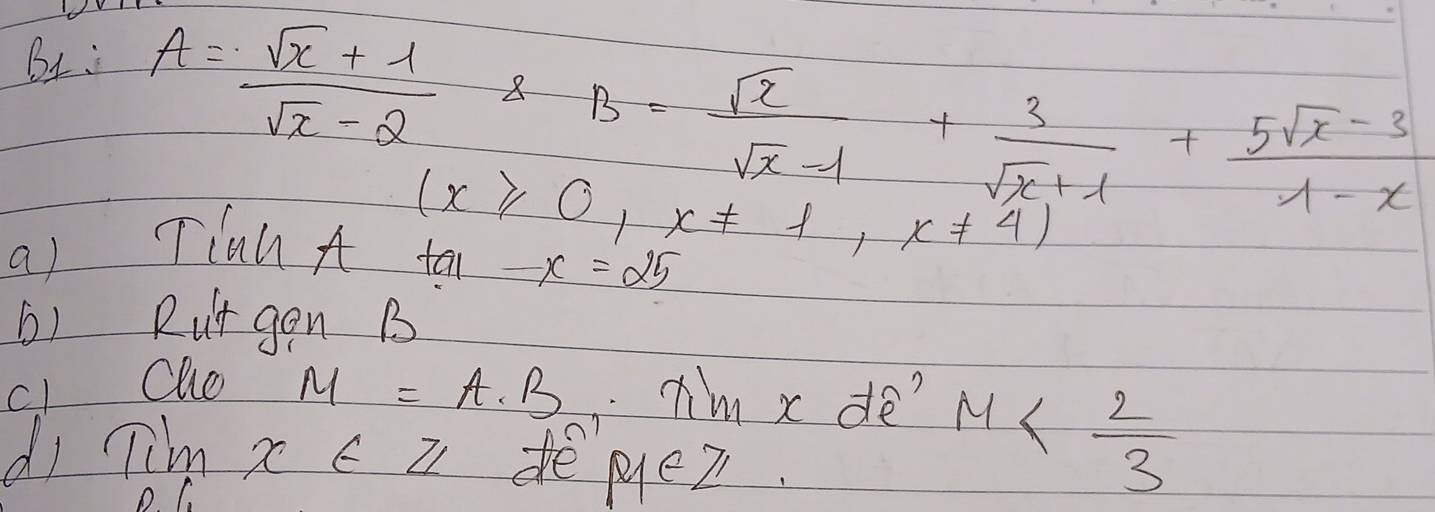 B1: A = (√x + 1)/(√x - 2) & B = √x/(√x - 1) + 3/(√x + 1) + (5√x - 3)/(1 - x)
(x ⩾ 0, x ≠ 1, x ≠ 4)
a) Tính A tại x = 25
b) Rút gọn B
c) Cho M = A.B. Tìm x để M < 2/3
d) Tìm x ∈ Z để M ∈ Z.